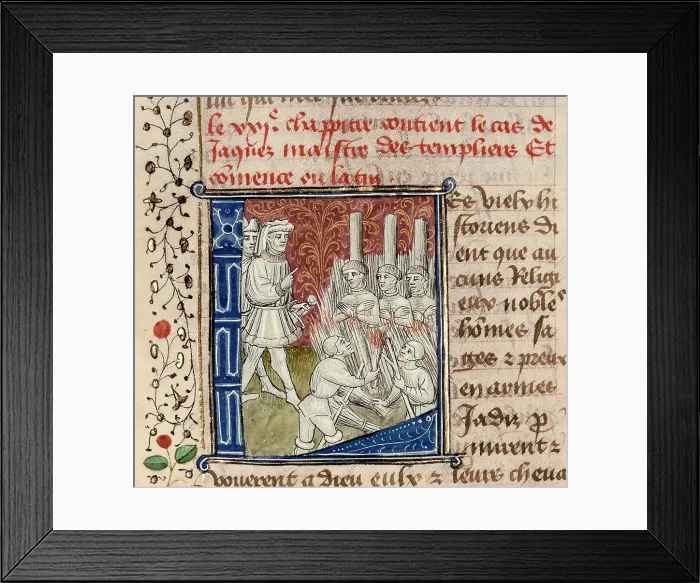 le xxj.e chappitre contient le cas de
Jaques maistre des templiers Et
cōmence ou latin
Es vielx hi
storiens di
ent que au
cuns Religi
eux nobles
hōmes sa
ges ⁊ preux
en armes
Jadiz p
mirent ⁊
vouerent a dieu eulx ⁊ leurs cheua